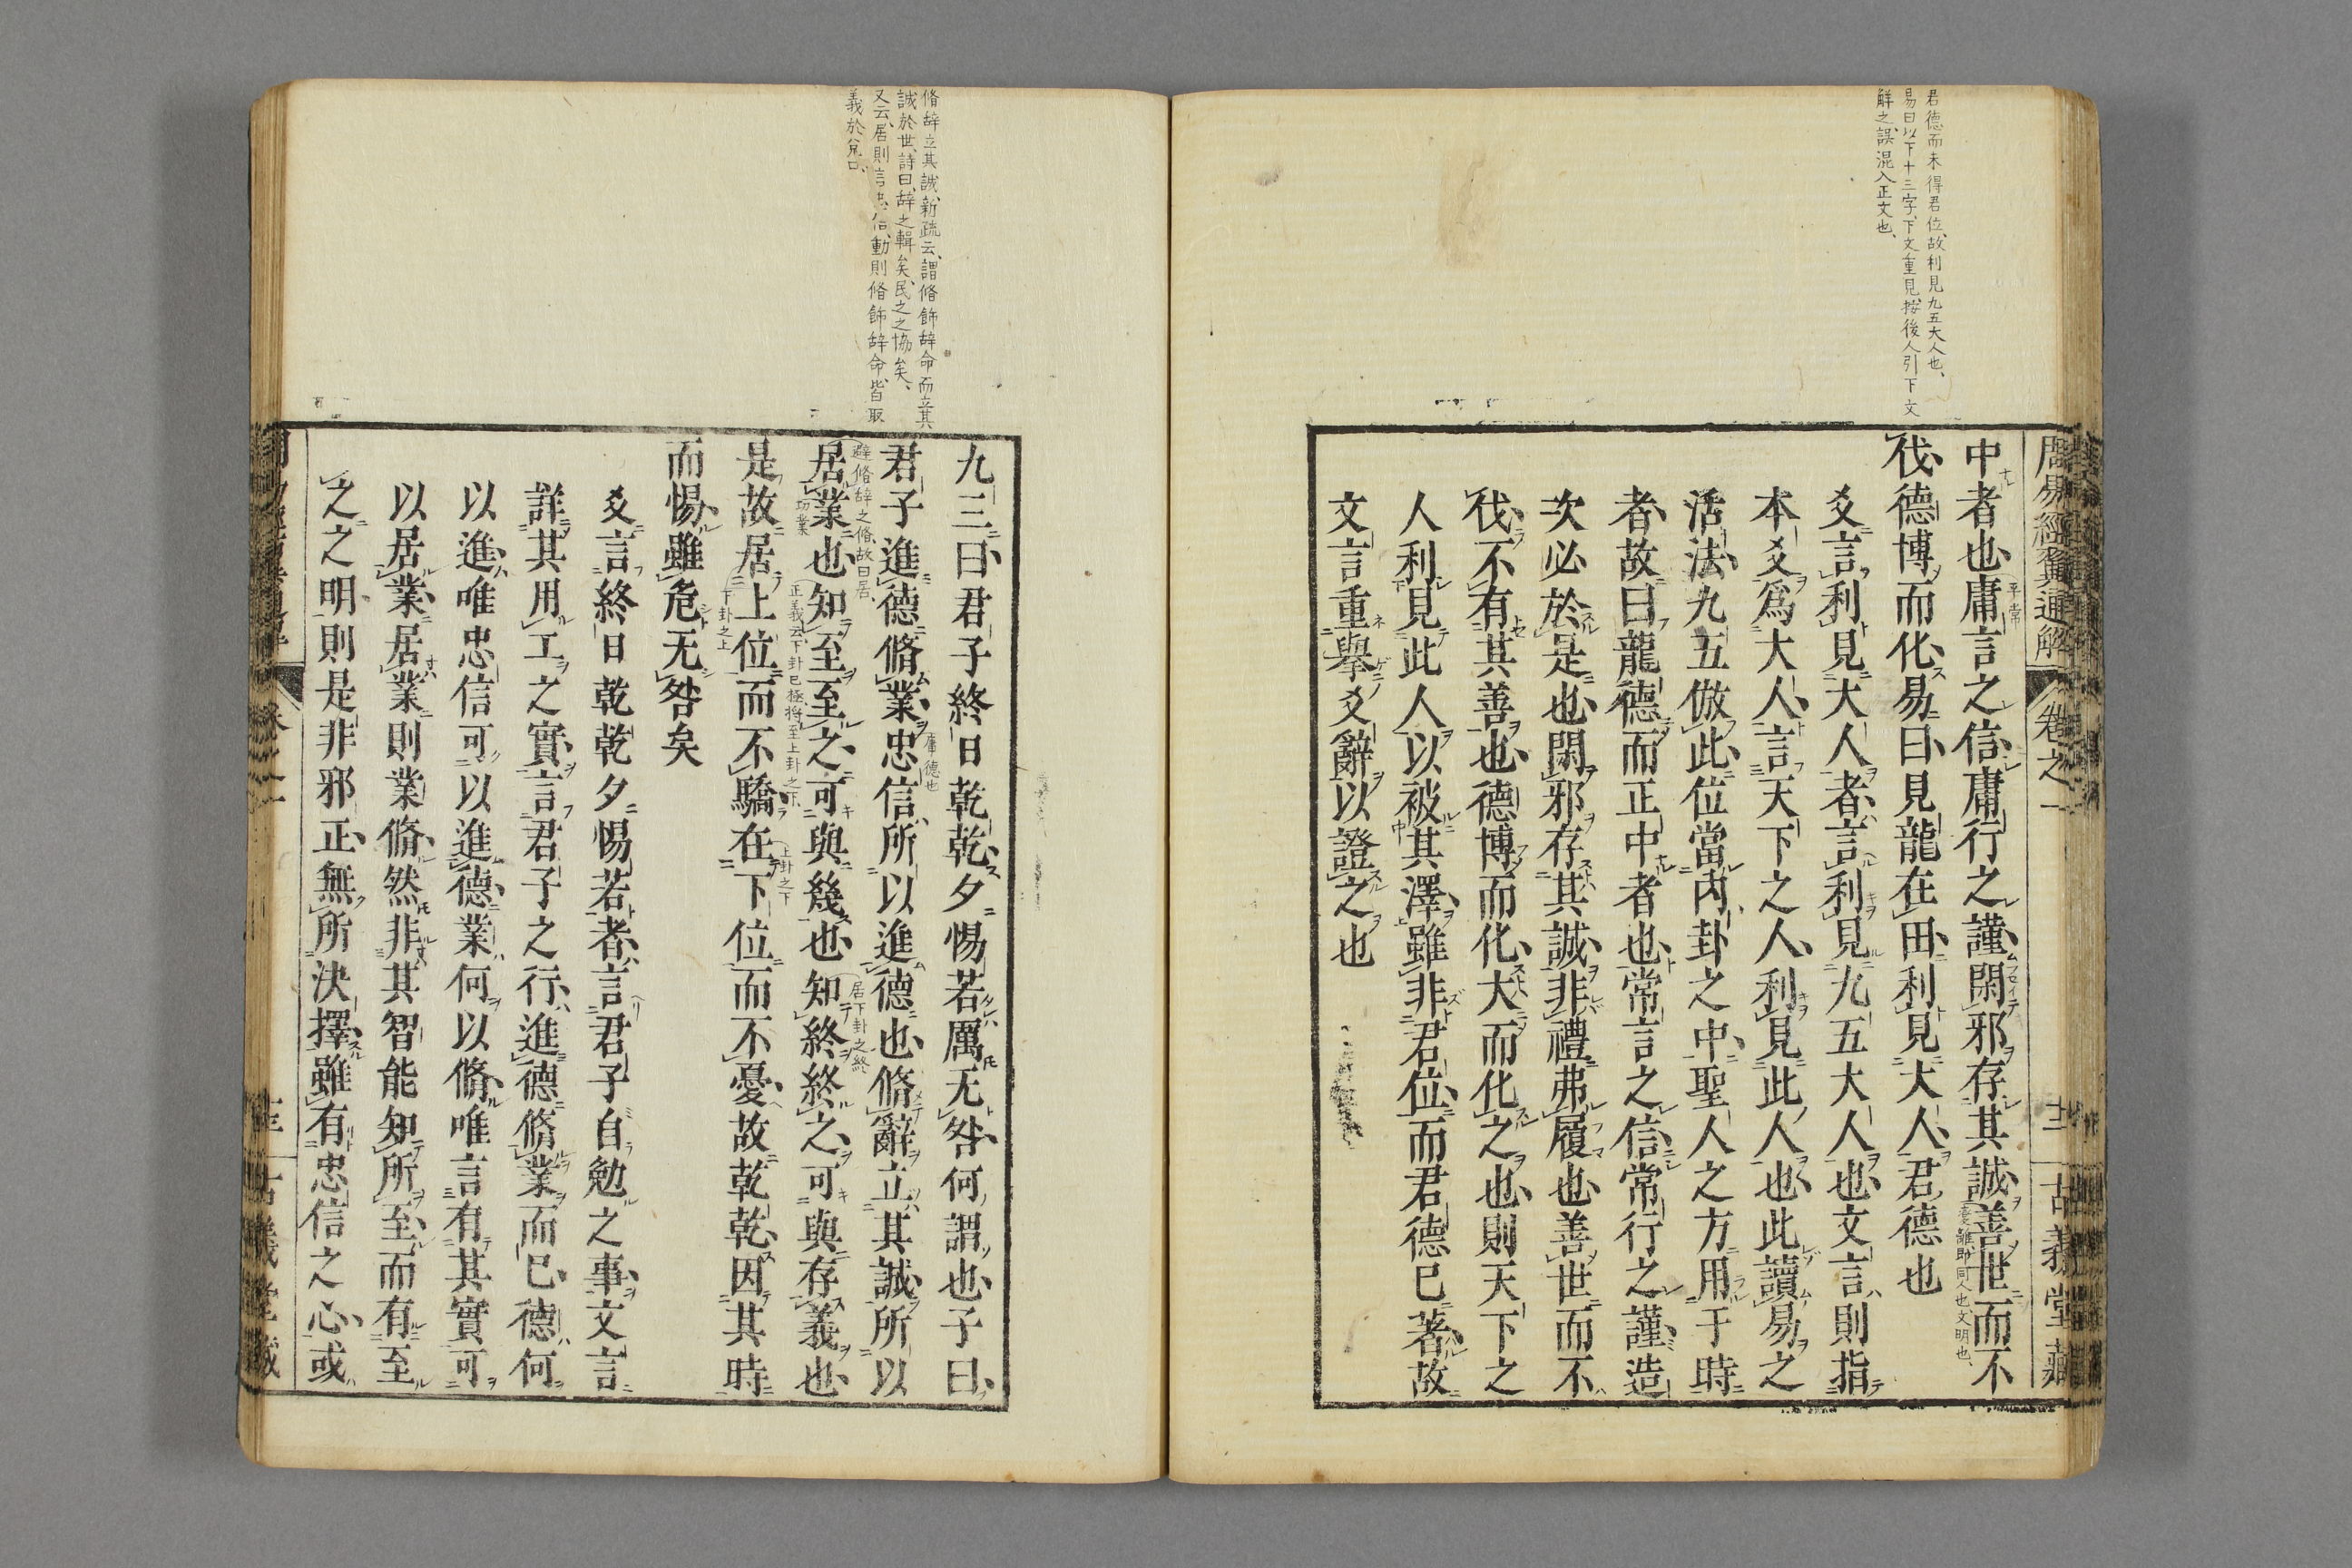 君德而未得君位、故利見九五大人也、
易曰以下十三字、下文重見、按後人引下文
解之、誤混入正文也、
周易經翼通解
卷之一
古義堂藏
中者也庸言之信庸行之謹閑邪存其誠善世而不
伐德博而化易曰見龍在田利見大人君德也
爻言利見大人者言利見九五大人也文言則指
本爻爲大人言天下之人利見此人也此讀易之
活法九五倣此位當內卦之中聖人之方用于時
者故曰龍德而正中者也常言之信常行之謹造
次必於是也閑邪存其誠非禮弗履也善世而不
伐不有其善也德博而化大而化之也則天下之
人利見此人以被其澤雖非君位而君德已著故
文言重擧爻辭以證之也
脩辭立其誠、新疏云、謂脩飾辭命而立其
誠於世、詩曰、辭之輯矣、民之協矣、
又云、居則言忠信、動則脩飾辭命、皆取
義於兌口、
九三曰君子終日乾乾夕惕若厲无咎何謂也子曰
庸德也
君子進德脩業忠信所以進德也脩辭立其誠所以
避脩辭之脩、故曰居、
居下卦之終
居業也知至至之可與幾也知終終之可與存義也
正義云、下卦已極、將至上卦之下、
是故居上位而不驕在下位而不憂故乾乾因其時
下卦之上
上卦之下
而惕雖危无咎矣
爻言終日乾乾夕惕若者言君子自勉之事文言
詳其用工之實言君子之行進德脩業而已德何
以進唯忠信可以進德業何以脩唯言有其實可
以居業居業則業脩然非其智能知所至而有至
之之明則是非邪正無所決擇雖有忠信之心或